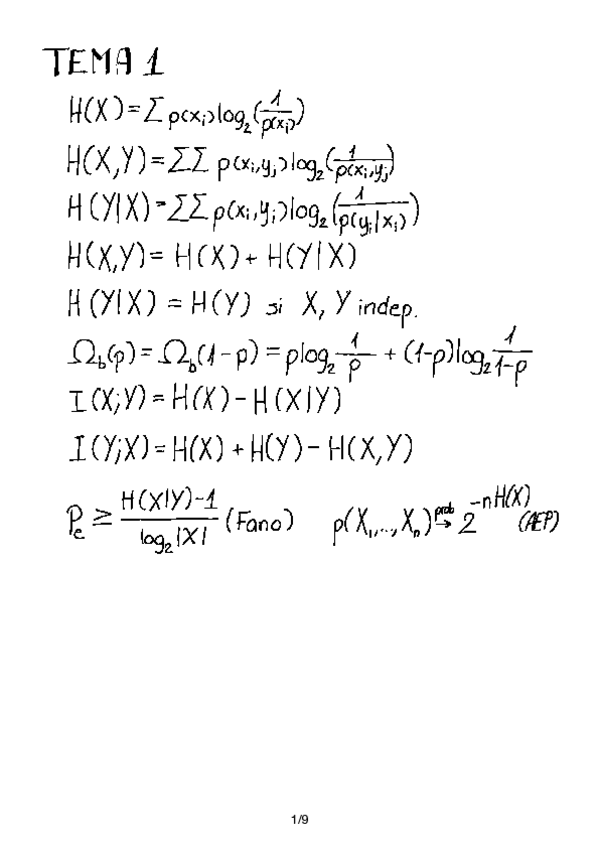 TEMA 1
H(X) = Σ p(xᵢ) log₂(1/p(xᵢ))
H(X,Y) = ΣΣ p(xᵢ,yⱼ) log₂(1/p(xᵢ,yⱼ))
H(Y|X) = ΣΣ p(xᵢ,yⱼ) log₂(1/p(yⱼ|xᵢ))
H(X,Y) = H(X) + H(Y|X)
H(Y|X) = H(Y) si X, Y indep.
Ω_b(p) = Ω_b(1-p) = p log₂ 1/p + (1-p) log₂ 1/1-p
I(X;Y) = H(X) - H(X|Y)
I(Y;X) = H(X) + H(Y) - H(X,Y)
P_e ≥ H(X|Y)-1/log₂|X| (Fano) p(X₁,...,Xₙ) prob→ 2^-nH(X) (AEP)
1/9